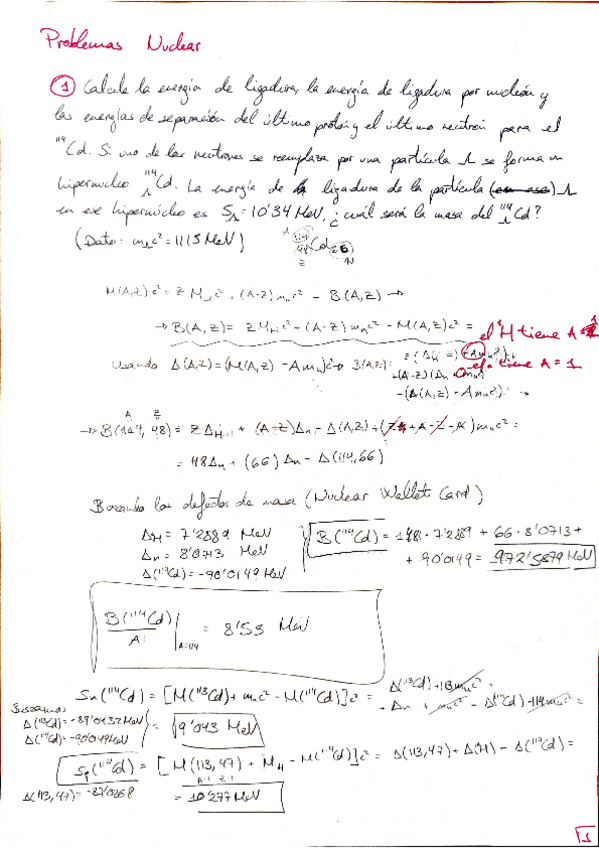 Problemas Nuclear
① Calcule la energía de ligadura, la energía de ligadura por nucleón y
las energías de separación del último protón y el último neutrón para el
¹¹⁴Cd. Si uno de los neutrones se reemplaza por una partícula Λ se forma un
hipernucleo ¹¹⁴_ΛCd. La energía de ligadura de la partícula Λ
en ese hipernúcleo es S_Λ = 10'34 MeV, ¿cuál será la masa del ¹¹⁴_ΛCd?
(Dato: m_Λc² = 1115 MeV)
A 114 Cd 66
48
Z N
M(A,Z)c² = Z M_Hc² + (A-Z) m_nc² - B(A,Z) →
→ B(A,Z) = Z M_Hc² + (A-Z) m_nc² - M(A,Z)c² = el ¹H tiene A=1
Usando Δ(A,Z) = (M(A,Z) - Am_u)c² → B(A,Z) = tiene A = 1
- (Δ(A,Z) - Am_uc²) = →
A Z
→ B(114, 48) = ZΔ_H + (A-Z)Δ_n - Δ(A,Z) + m_uc² =
= 48Δ_H + (66)Δ_n - Δ(114,66)
Buscando los defectos de masa (Nuclear Wallet Card)
Δ_H = 7'2889 MeV
Δ_n = 8'0713 MeV
Δ(¹¹⁴Cd) = -90'0149 MeV
B(¹¹⁴Cd) = 48·7'2889 + 66·8'0713 +
+ 90'0149 = 972'5879 MeV
B(¹¹⁴Cd)/A |_A=114 = 8'53 MeV
Sn(¹¹⁴Cd) = [M(¹¹³Cd) + m_nc² - M(¹¹⁴Cd)]c² = Δ(¹¹³Cd) + 113m_uc² +
+ Δn + m_uc² - Δ(¹¹⁴Cd) - 114m_uc² =
Buscamos
Δ(¹¹³Cd) = -89'0432 MeV
Δ(¹¹⁴Cd) = -90'0149 MeV
= 9'043 MeV
Sp(¹¹⁴Cd) = [M(113,47) + M_H - M(¹¹⁴Cd)]c² = Δ(113,47) + Δ(H) - Δ(¹¹⁴Cd) =
A-1 Z-1
Δ(113,47) = -87'0268
= 10'277 MeV
1